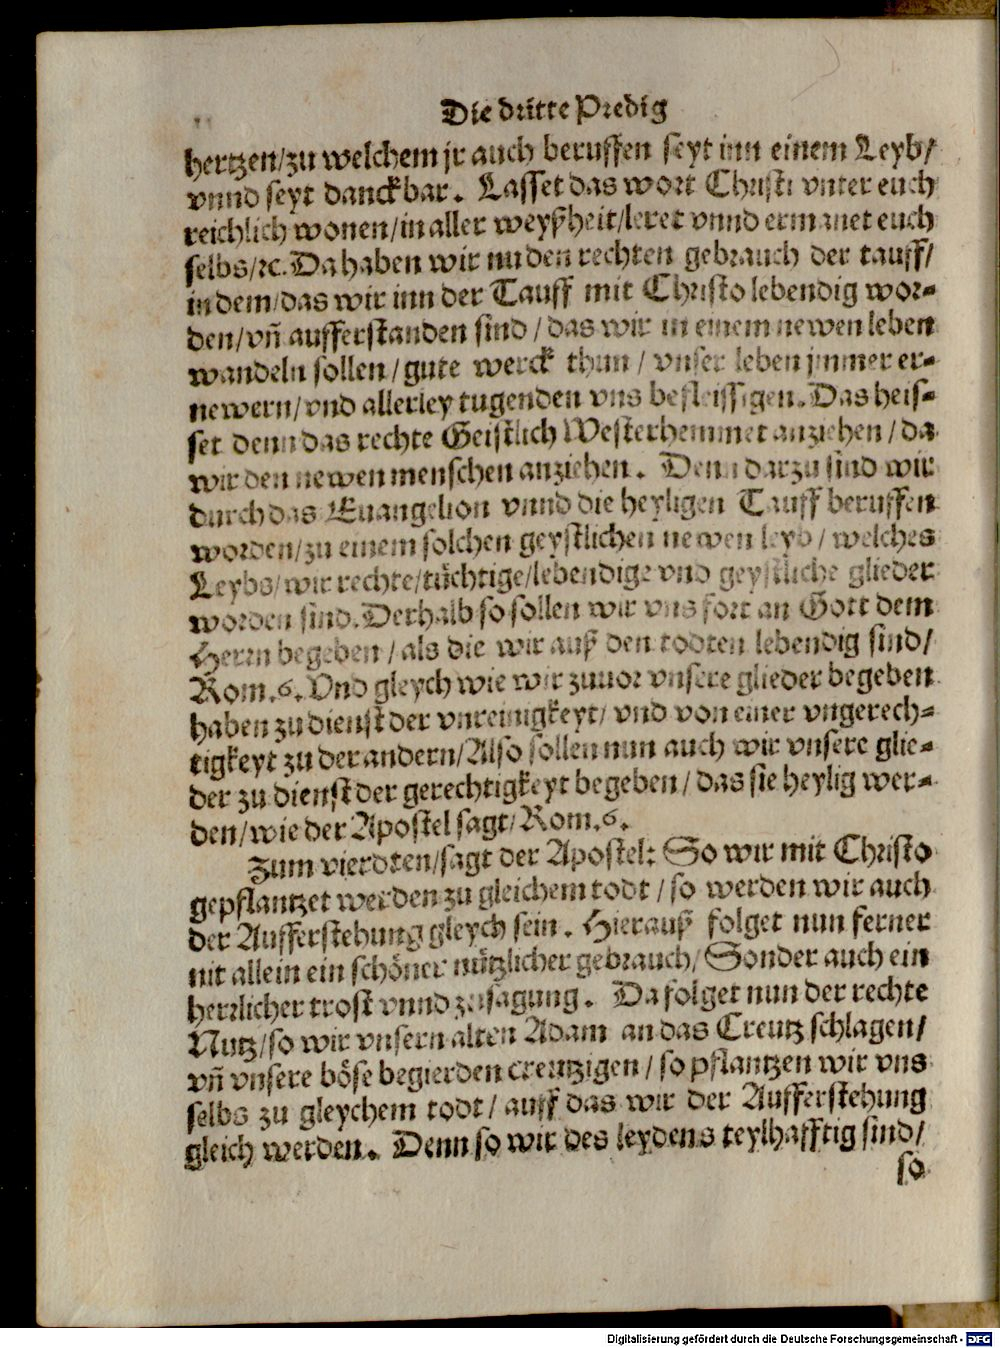 Die dritte Predig
hertzen/zu welchem jr auch beruffen seyt inn einem Leyb/
vnnd seyt danckbar. Lasset das wort Christi vnter euch
reichlich wonen/in aller weyßheit/leret vnnd ermanet euch
selbs/ꝛc. Da haben wir nu den rechten gebrauch der tauff/
in dem/das wir inn der Tauff mit Christo lebendig wor-
den/vn̄ aufferstanden sind/das wir in einem newen leben
wandeln sollen/gute werck thun/vnser leben jmmer er-
newern/vnd allerley tugenden vns befleissigen. Das heis-
set denn das rechte Geistlich Westerhemmet anziehen/da
wir den newen menschen anziehen. Denn darzu sind wir
durch das Euangelion vnnd die heyligen Tauff beruffen
worden/zu einem solchen geystlichen newen leyb/welches
Leybs/wir rechte/tüchtige/lebendige vnd geystliche glieder
worden sind. Derhalb so sollen wir vns fort an Gott dem
Herrn begeben/als die wir auß den todten lebendig sind/
Rom.6. Vnd gleych wie wir zuuor vnsere glieder begeben
haben zu dienst der vnreinigkeyt/vnd von einer vngerech-
tigkeyt zu der andern/Also sollen nun auch wir vnsere glie-
der zu dienst der gerechtigkeyt begeben/das sie heylig wer-
den/wie der Apostel sagt/Rom.6.
Zum vierdten/sagt der Apostel: So wir mit Christo
gepflantzet werden zu gleichem todt/so werden wir auch
der Aufferstehung gleych sein. Hierauß folget nun ferner
nit allein ein schöner nützlicher gebrauch/Sonder auch ein
herrlicher trost vnnd zusagung. Da folget nun der rechte
Nutz/so wir vnsern alten Adam an das Creutz schlagen/
vn̄ vnsere böse begierden creutzigen/so pflantzen wir vns
selbs zu gleychem todt/auff das wir der Aufferstehung
gleich werden. Denn so wir des leydens teylhafftig sind/
so
Digitalisierung gefördert durch die Deutsche Forschungsgemeinschaft - DFG